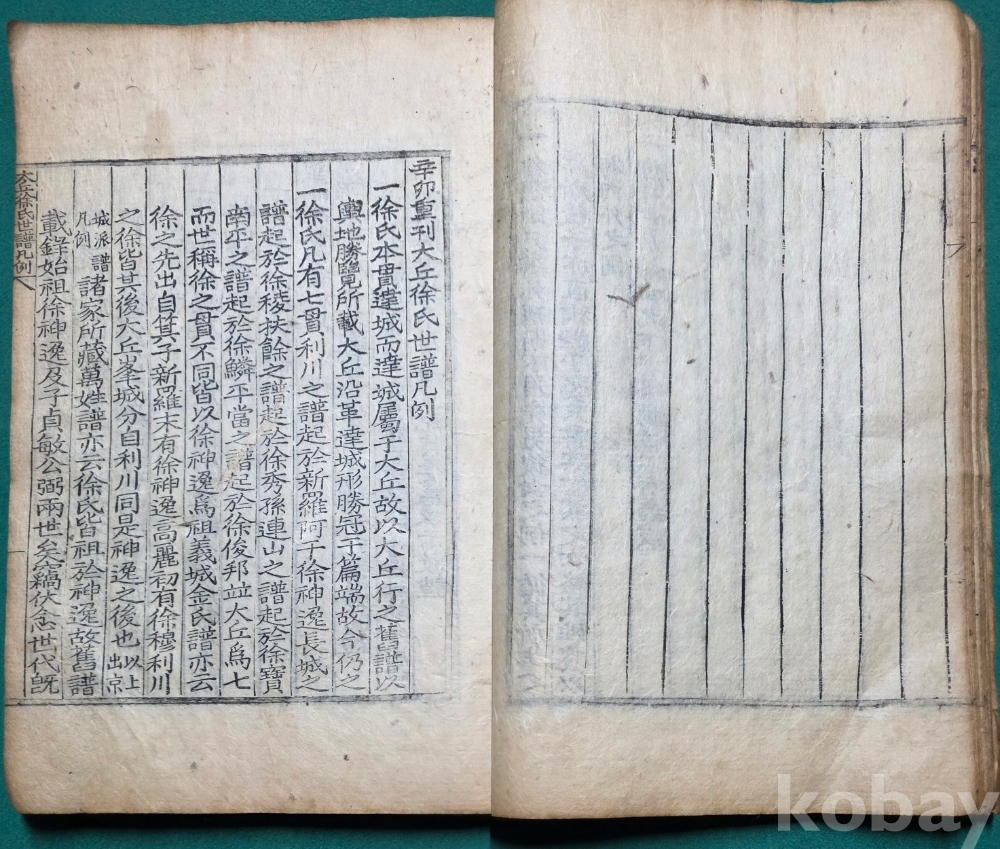 辛卯重刊大丘徐氏世譜凡例
一徐氏本貫達城而達城屬于大丘故以大丘行之舊譜以
輿地勝覽所載大丘沿革達城形勝冠于篇端故今仍之
一徐氏凡有七貫利川之譜起於新羅阿干徐神逸長城之
譜起於徐稜扶餘之譜起於徐秀孫連山之譜起於徐寶
南平之譜起於徐鱗平當之譜起於徐俊邦竝大丘爲七
而世稱徐之貫不同皆以徐神逸爲祖義城金氏譜亦云
徐之先出自箕子新羅末有徐神逸高麗初有徐穆利川
之徐皆其後大丘峯城分自利川同是神逸之後也以上出京
城派譜凡例諸家所藏萬姓譜亦云徐氏皆祖於神逸故舊譜
載錄始祖徐神逸及子貞敏公弼兩世矣竊伏念世代旣
大丘徐氏世譜凡例
kobay